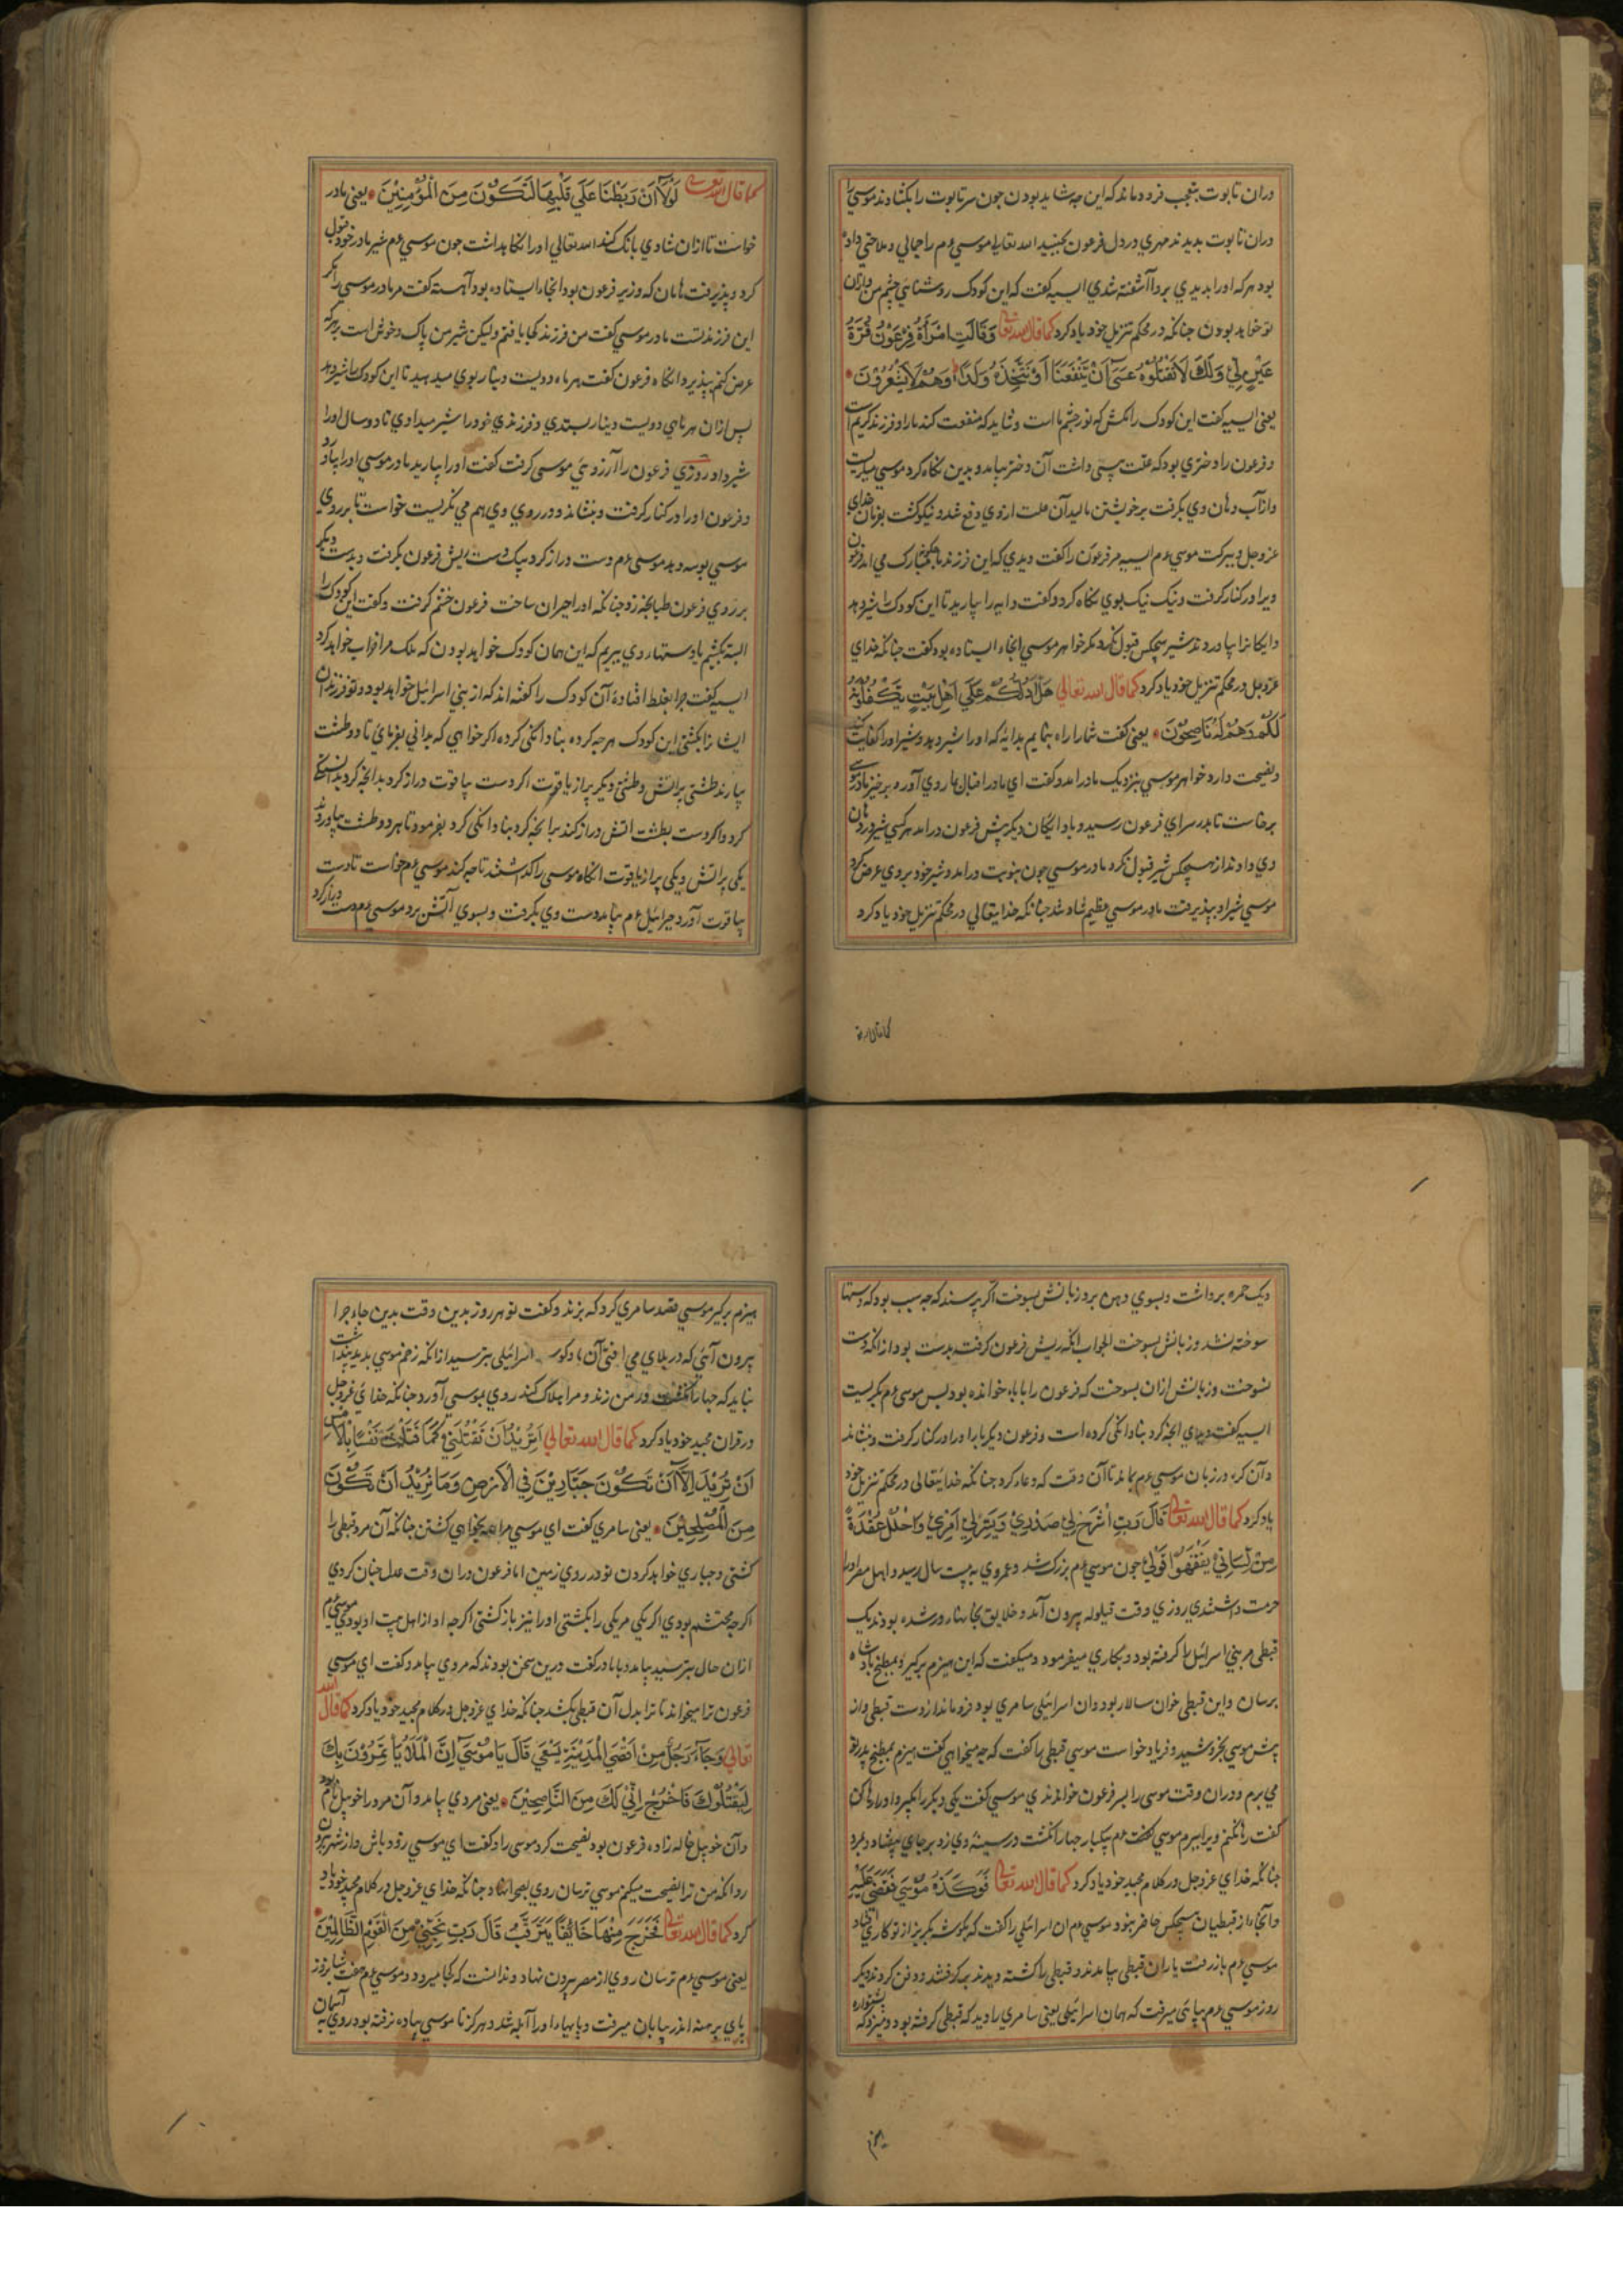 دران تابوت بتعجب فرو ماند که این چه شاید بودن جون سر تابوت را بکشادند موسی را
دران تابوت بدیدند مهری در دل فرعون بجنبید الله تعالی موسی عم را جمالی و ملاحتی داده
بود هر که اورا بدیدی بروا آشفته شدی اسیه کفت که این کودک روشنایی چشم من وازان
تو خواهد بودن جنانکه در محکم تنزیل خود یاد کرد کما قال الله تعالی وَقَالَتِ امْرَأَةُ فِرْعَوْنَ قُرَّةُ
عَيْنٍ لِي وَلَكَ لَا تَقْتُلُوهُ عَسَى أَنْ يَنْفَعَنَا أَوْ نَتَّخِذَهُ وَلَدًا وَهُمْ لَا يَشْعُرُونَ
یعنی اسیه کفت این کودک را مکش که نور چشم ما است و شاید که منفعت کند مارا و فرزند کریم است
و فرعون را دختری بود که علت پیسی داشت آن دختر بیامد و بدین نکاه کرد موسی میکریست
و از آب دهان وی بکرفت بر خویشتن مالید آن علت ازوی دفع شد و نیکو کشت بفرمان خدای
عز وجل و ببرکت موسی عم اسیه مر فرعون را کفت دیدی که این فرزند ما مبارک می اید فرعون
ویرا در کنار کرفت و نیک نیک بوی نکاه کرد و کفت دایه را بیارید تا این کودک را شیر دهد
دایکانرا بیاوردند شیر هیچکس قبول نکرد مکر خواهر موسی انجا ایستاده بود کفت جنانکه خدای
عز وجل در محکم تنزیل خود یاد کرد کما قال الله تعالی هَلْ أَدُلُّكُمْ عَلَى أَهْلِ بَيْتٍ يَكْفُلُونَهُ
لَكُمْ وَهُمْ لَهُ نَاصِحُونَ یعنی کفت شمارا راه بنمایم بدایه که اورا شیر دهد و شیر اورا کفایت کند
و نصیحت دارد خواهر موسی بنزدیک مادر امد و کفت ای مادر اقبال بما روی آورد برخیز مادر موسی
برخاست تا بدر سرای فرعون رسید و با دایکان دیکر پیش فرعون درامد هر کسی شیر در دهان
وی دادند از هیچکس شیر قبول نکرد مادر موسی جون بنوبت درامد و شیر خود بروی عرض کرد
موسی شیر او بپذیرفت مادر موسی عظیم شاد شد جنانکه خدایتعالی در محکم تنزیل خود یاد کرد
کما قال الله تعالی لَوْلَا أَنْ رَبَطْنَا عَلَى قَلْبِهَا لِتَكُونَ مِنَ الْمُؤْمِنِينَ یعنی مادر
خواست تا ازان شادی بانک کند الله تعالی اورا نکاه داشت جون موسی عم شیر مادر خود قبول
کرد و پذیرفت هامان که وزیر فرعون بود انجا ایستاده بود آهسته کفت مر مادر موسی را مکر
این فرزند تست مادر موسی کفت من فرزند کجا یافتم ولیکن شیر من پاک و خوش است بر هر که
عرض کنم بپذیرد انکاه فرعون کفت هر ماه دویست دینار بوی میدهید تا این کودک را شیر دهد
پس ازان هر ماهی دویست دینار بستدی و فرزندی خود را شیر میدادی تا دو سال اورا
شیر داد روزی فرعون را آرزوئی موسی کرفت کفت اورا بیارید مادر موسی اورا بیاورد
و فرعون اورا در کنار کرفت و بنشاند و در روی وی هم می نکریست خواست تا بر روی
موسی بوسه دهد موسی عم دست دراز کرد بیک دست ریش فرعون بکرفت و بدست دیکر
بر روی فرعون طبانجه زد جنانکه اورا حیران ساخت فرعون خشم کرفت و کفت این کودک را
البته بکشیم یا دستهای وی ببریم که این همان کودک خواهد بودن که ملک مرا خراب خواهد کرد
اسیه کفت جرا بغلط افتادهٔ آن کودک را کفته اند که از بنی اسرائیل خواهد بود و تو فرزندان
ایشانرا بکشتی این کودک هر چه کرده بنادانکی کرده اکر خواهی که بدانی بفرمای تا دو طشت
بیارند طشتی پر آتش و طشتی دیکر پر از یاقوت اکر دست بیاقوت دراز کرد بدانجه کرد بدانستکی
کرد و اکر دست بطشت اتش دراز کند برانجه کرد بنادانکی کرد بفرمود تا هر دو طشت بیاوردند
یکی پر اتش و یکی پر از یاقوت انکاه موسی را کذاشتند تا چه کند موسی عم خواست تا دست
بیاقوت آورد جبرائیل عم بیامد دست وی بکرفت و بسوی آتش برد موسی عم دست دراز کرد
ویک جمره برداشت و بسوی دهن برد زبانش بسوخت اکر پرسند که چه سبب بود که دستها
سوخته نشد و زبانش بسوخت الجواب انکه ریش فرعون کرفته بدست بود ازانکه دست
نسوخت و زبانش ازان بسوخت که فرعون را بابا خوانده بود پس موسی عم بکریست
اسیه کفت دیدی انجه کرد بنادانکی کرده است و فرعون دیکر باره اورا در کنار کرفت و بنشاند
و آن کره در زبان موسی عم بماند تا آن وقت که دعا کرد جنانکه خدایتعالی در محکم تنزیل خود
یاد کرد کما قال الله تعالی قَالَ رَبِّ اشْرَحْ لِي صَدْرِي وَيَسِّرْ لِي أَمْرِي وَاحْلُلْ عُقْدَةً
مِنْ لِسَانِي يَفْقَهُوا قَوْلِي جون موسی عم بزرک شد و عمر وی به بیست سال رسید و اهل مصر اورا
حرمت داشتندی روزی وقت قیلوله بیرون آمد و خلایق بخانها در شده بودند یک
قبطی مر بنی اسرائیل را کرفته بود و بکاری میفرمود و میکفت که این هیزم برکیر و بمطبخ پادشاه
برسان و این قبطی خوان سالار بود وان اسرائیلی سامری بود فرو ماند از دست قبطی واز
پیش موسی بخروشید و فریاد خواست موسی قبطی را کفت که چه میخواهی کفت هیزم بمطبخ پدر تو
می برم و دران وقت موسی را پسر فرعون خواندندی موسی کفت یکی دیکر را بکیر و اورا رها کن
کفت رها نکنم ویرا ببرم موسی عم بیکبار جهار انکشت در سینهٔ وی زد بر جای بیفتاد و بمرد
جنانکه خدای عز وجل در کلام مجید خود یاد کرد کما قال الله تعالی فَوَكَزَهُ مُوسَى فَقَضَى عَلَيْهِ
و آنجا از قبطیان هیچکس حاضر نبود موسی عم ان اسرائیلی را کفت که بکوشه بکریز از تو کاری افتاد
موسی عم باز رفت یاران قبطی بیامدند و قبطی را کشته دیدند برکرفتند و دفن کردند دیکر
روز موسی عم بپایی میرفت که همان اسرائیلی یعنی سامری را دید که قبطی کرفته بود و میزد که پشتواره
هیزم برکیر موسی قصد سامری کرد که بزند و کفت تو هر روز بدین وقت بدین جای چرا
بیرون آئی که در بلای می افتی آن اسرائیلی بترسید ازانکه زخم موسی بدید پنداشت
نباید که چهار انکشت در من زند و مرا هلاک کند روی بموسی آورد جنانکه خدای عز وجل
در قران مجید خود یاد کرد کما قال الله تعالی أَتُرِيدُ أَنْ تَقْتُلَنِي كَمَا قَتَلْتَ نَفْسًا بِالْأَمْسِ
إِنْ تُرِيدُ إِلَّا أَنْ تَكُونَ جَبَّارًا فِي الْأَرْضِ وَمَا تُرِيدُ أَنْ تَكُونَ
مِنَ الْمُصْلِحِينَ یعنی سامری کفت ای موسی مرا همی خواهی کشتن جنانکه آن مرد قبطی را
کشتی و جباری خواهد کردن تو در روی زمین اما فرعون دران وقت عدل جنان کردی
اکر چه محتشم بودی اکر یکی مر یکی را بکشتی اورا نیز باز کشتی اکر جه او از اهل بیت او بودی موسی عم
ازان حال بترسید بیامد با مادر کفت درین سخن بودند که مردی بیامد و کفت ای موسی
فرعون ترا میخواند تا ترا بدل آن قبطی بکشد جنانکه خدای عز وجل در کلام مجید خود یاد کرد کما قال الله
تعالی وَجَاءَ رَجُلٌ مِنْ أَقْصَى الْمَدِينَةِ يَسْعَى قَالَ يَا مُوسَى إِنَّ الْمَلَأَ يَأْتَمِرُونَ بِكَ
لِيَقْتُلُوكَ فَاخْرُجْ إِنِّي لَكَ مِنَ النَّاصِحِينَ یعنی مردی بیامد و آن مرد را خوبیل نام بود
و آن خوبیل خاله زاده فرعون بود نصیحت کرد موسی را و کفت ای موسی زود باش و از شهر بیرون
رو انکه من ترا نصیحت میکنم موسی ترسان روی بصحرا نهاد جنانکه خدای عز وجل در کلام مجید خود یاد
کرد کما قال الله تعالی فَخَرَجَ مِنْهَا خَائِفًا يَتَرَقَّبُ قَالَ رَبِّ نَجِّنِي مِنَ الْقَوْمِ الظَّالِمِينَ
یعنی موسی عم ترسان روی از مصر بیرون نهاد و ندانست که کجا میرود و موسی عم هفت شبانروز
پای برهنه اندر بیابان میرفت و پایهاء اورا آبله شد و هرکز تا موسی پیاده نرفته بود روی به آسمان